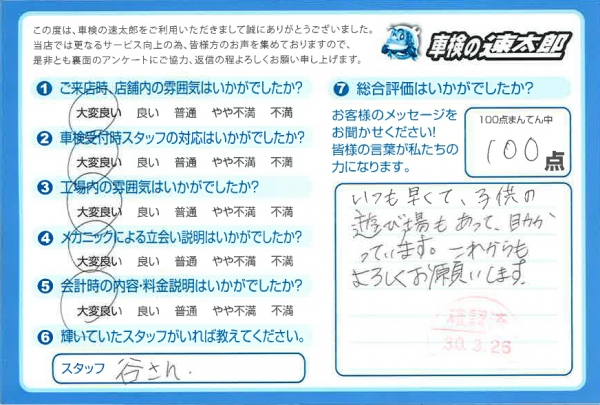 この度は、車検の速太郎をご利用いただきまして誠にありがとうございました。
当店では更なるサービス向上の為、皆様方のお声を集めておりますので、
是非とも裏面のアンケートにご協力、返信の程よろしくお願い申し上げます。
車検の速太郎
1 ご来店時、店舗内の雰囲気はいかがでしたか?
大変良い 良い 普通 やや不満 不満
2 車検受付時スタッフの対応はいかがでしたか?
大変良い 良い 普通 やや不満 不満
3 工場内の雰囲気はいかがでしたか?
大変良い 良い 普通 やや不満 不満
4 メカニックによる立会い説明はいかがでしたか?
大変良い 良い 普通 やや不満 不満
5 会計時の内容・料金説明はいかがでしたか?
大変良い 良い 普通 やや不満 不満
6 輝いていたスタッフがいれば教えてください。
スタッフ 谷さん.
7 総合評価はいかがでしたか?
お客様のメッセージを
お聞かせください!
皆様の言葉が私たちの
力になります。
100点まんてん中
100点
いつも早くて、子供の
遊び場もあって、助か
っています。これからも
よろしくお願いします
確認済
30.3.26